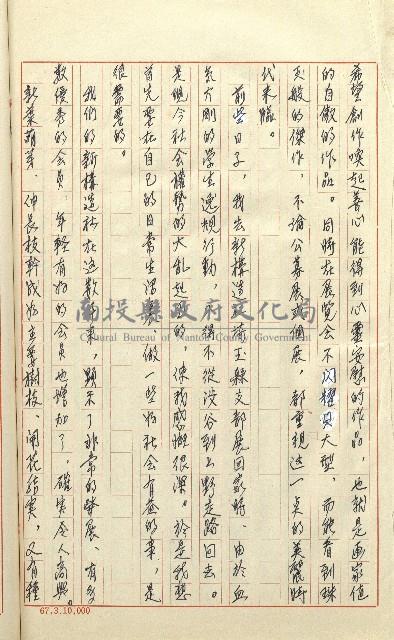 希望創作喚起善心能得到心靈安慰的作品,也就是画家值
的自傲的作品。同時在展覽会不閃耀只大型,而能看到珠
玉般的傑作,不論公募展、個展,都重視這一点的美麗時
代来臨。
前些日子,我去新構造社埼玉縣支部展回家時,由於血
氣方剛的学生逸規行動,得不從渋谷到上野走路回去。
是現今社会權勢的大乱起因的,使我感慨很深。於是我想
首先要在自己的日常生活裡、做一些為社会有益的事,是
很需要的。
我們的新構造社在這数年,顯示了非常的發展、有多
数優秀的会員、年輕有為的会員也增加了,確実令人高興。
新葉萌芽、伸長枝幹成為主要樹枝、開花結実,又有種
南投縣政府文化局
Cultural Bureau of Nantou County Government
67.3.10,000